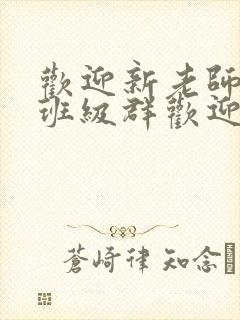 歡迎新老師
班級群歡迎
蒼崎律知念